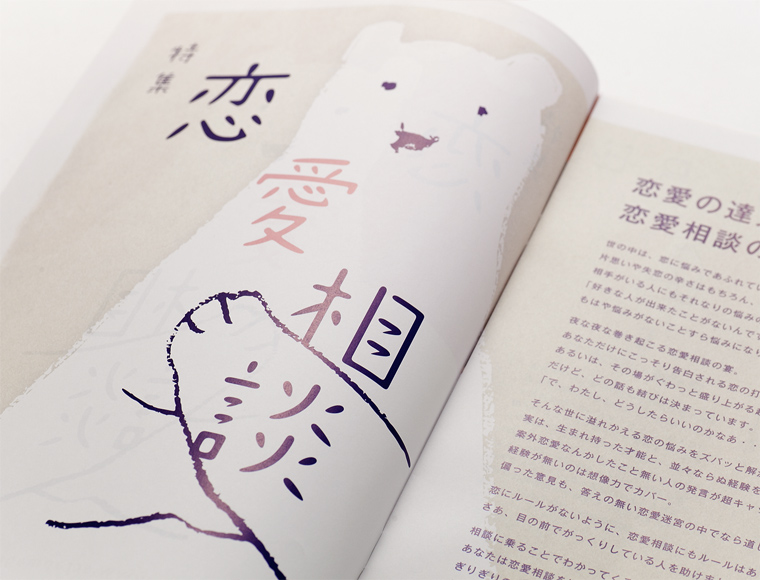 特集
恋愛相談
恋愛の達
恋愛相談の
世の中は、恋に悩みであふれてい
片思いや失恋の辛さはもちろん、
相手がいる人にもそれなりの悩みの
「好きな人が出来たことがないんで
もはや悩みがないことすら悩みになり
夜な夜な巻き起こる恋愛相談の宴。
あなただけにこっそり告白される恋の打
あるいは、その場がくわっと盛り上がる
だけど、どの話も結びは決まっています。
「で、わたし、どうしたらいいのかなあ・・
そんな世に溢れかえる恋の悩みをズバッと解
実は、生まれ持った才能と、並々ならぬ経験を
案外恋愛なんかしたこと無い人の発言が超キャ
経験が無いのは想像力でカバー。
偏った意見も、答えの無い恋愛迷宮の中でなら道し
恋にルールがないように、恋愛相談にもルールはあ
さあ、目の前でがっくりしている人を助けま
相談に乗ることでわかってく
あなたは恋愛相談を
ぎりぎりの